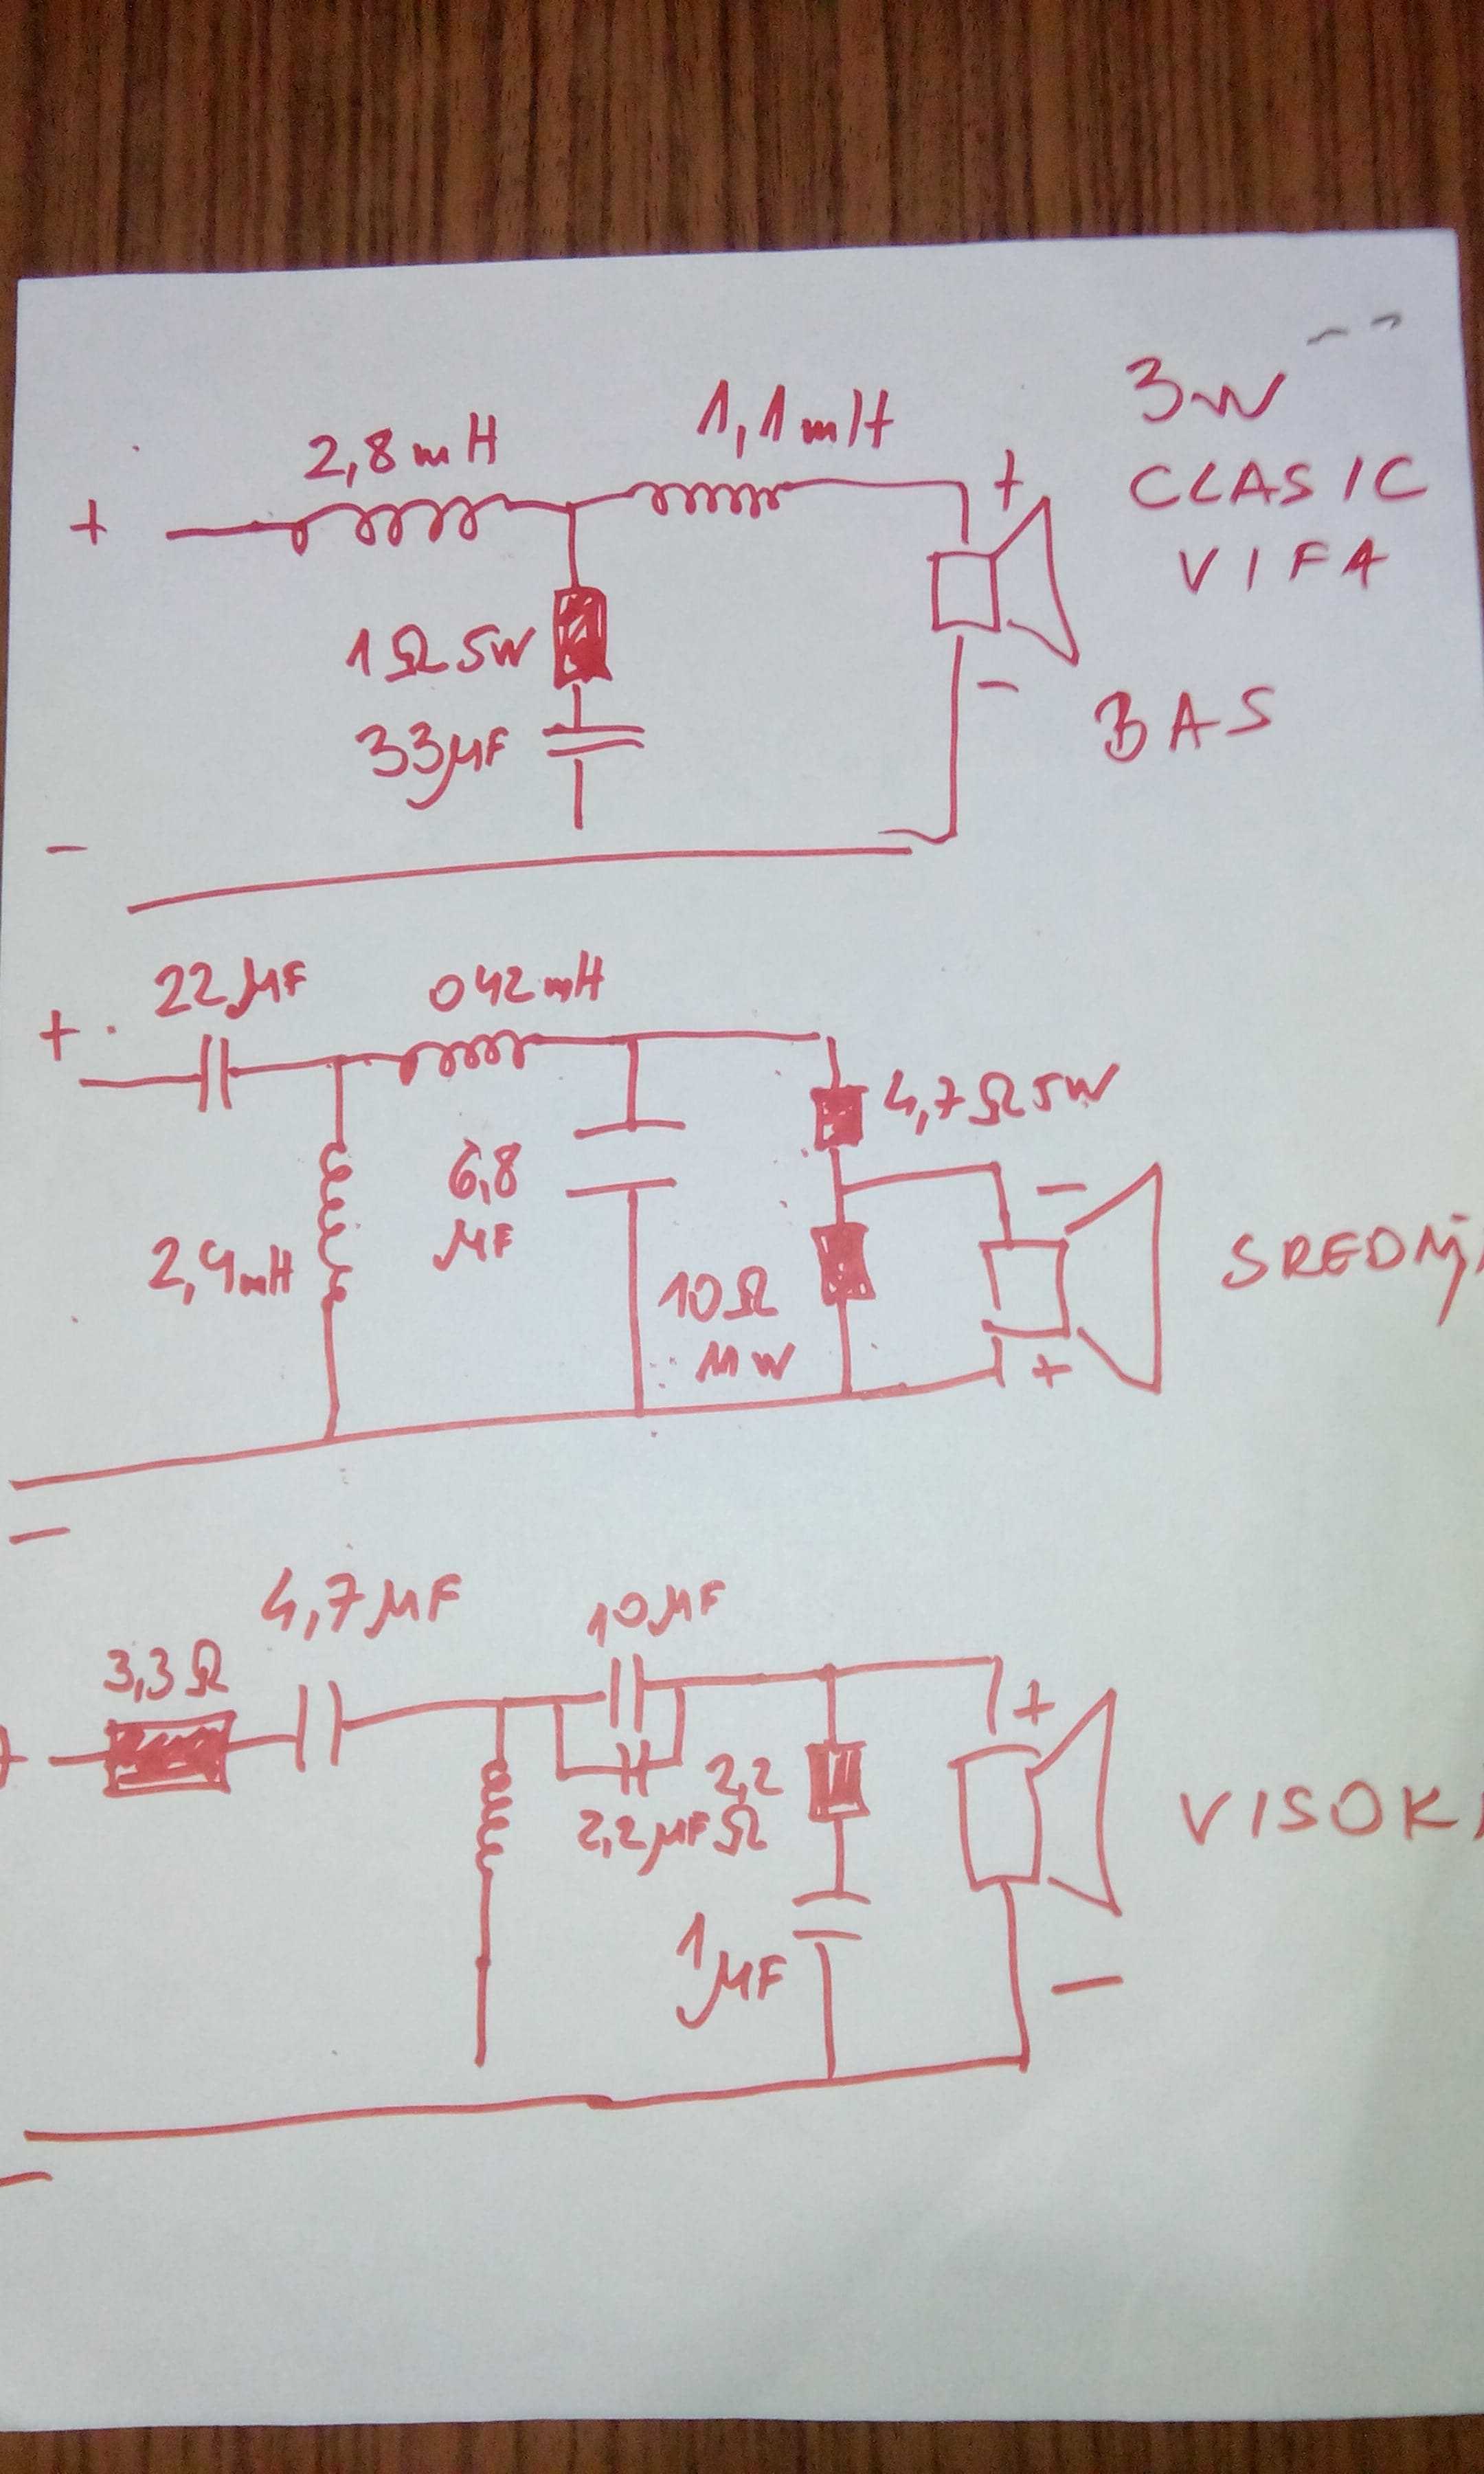 3W
CLASIC
VIFA
2,8mH
1,1mH
+
+
1Ω5W
33µF
-
BAS
-
22µF
042mH
+
4,7Ω5W
6,8
µF
2,4mH
-
SREDNJ
10Ω
11W
+
-
4,7µF
10µF
3,3Ω
+
+
2,2
Ω
2,2µF
VISOK
1µF
-
-